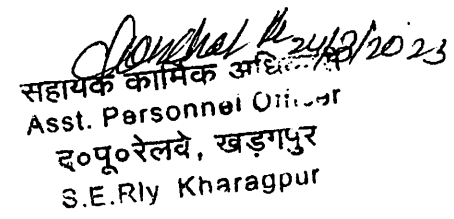 24/8/2023
सहायक कार्मिक
Asst. Personnel Officer
द०पू०रेलवे, खड़गपुर
S.E.Rly Kharagpur